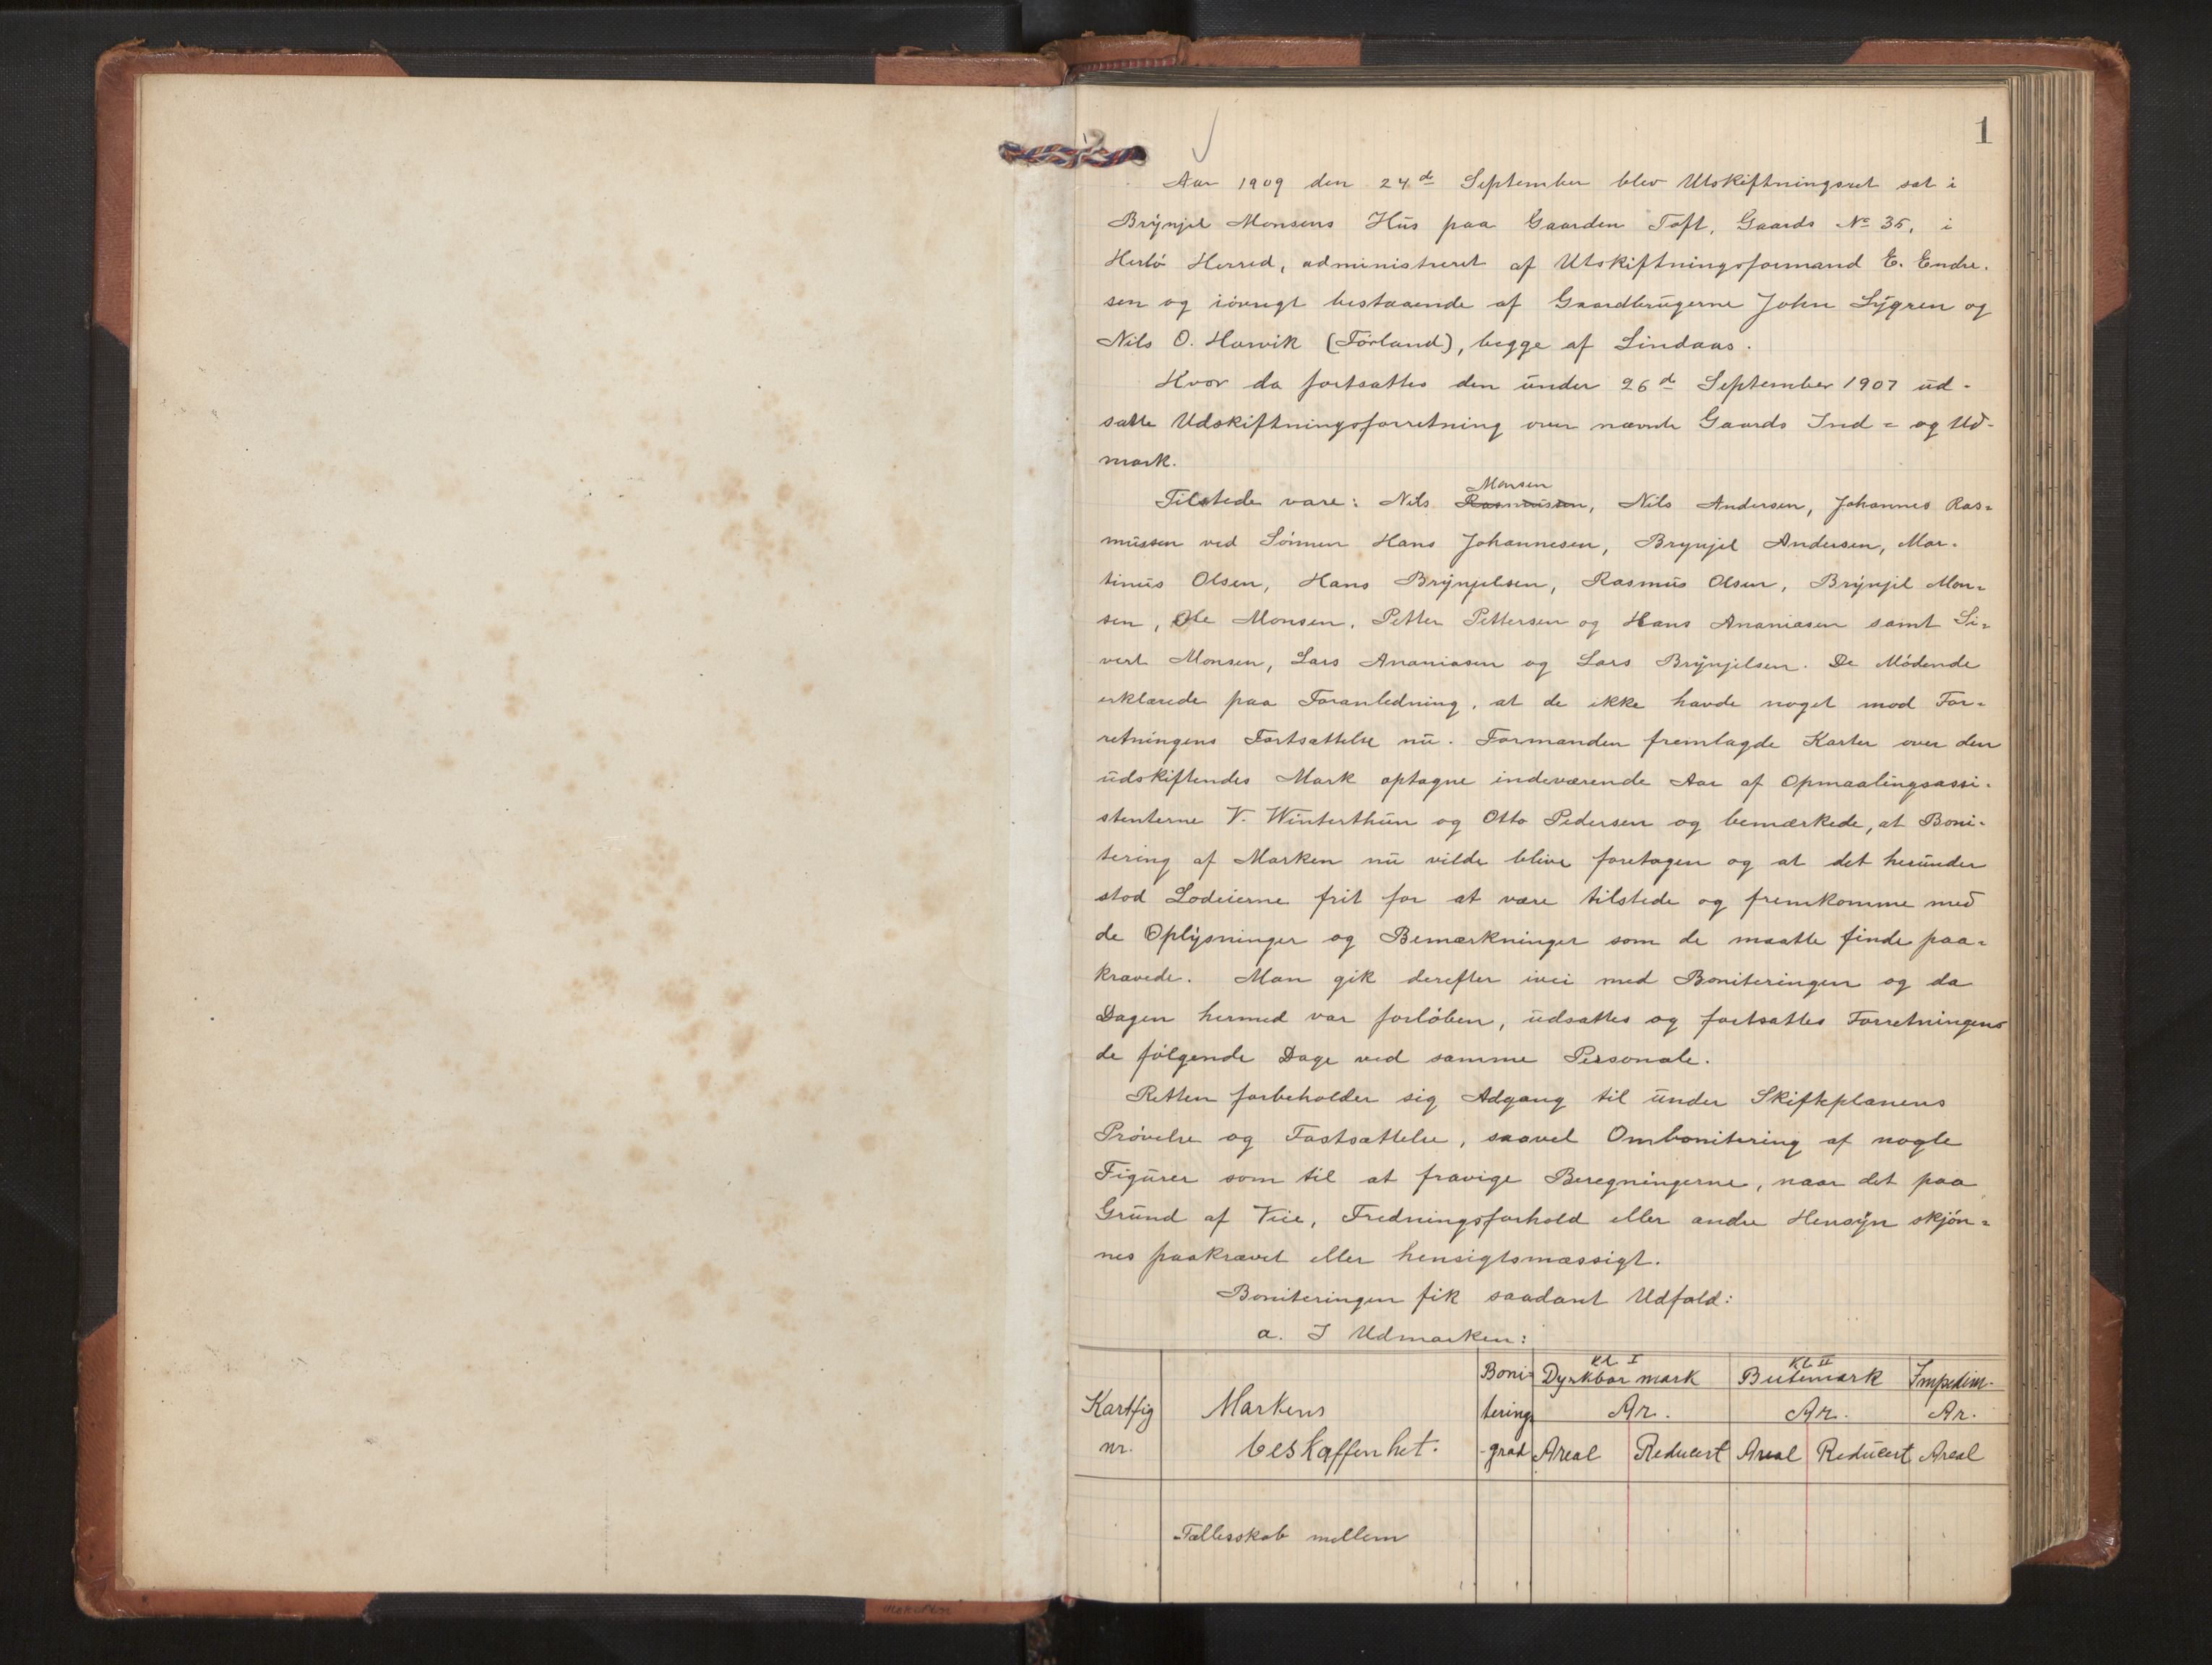 1
Aar 1909 den 24de September blev Utskiftningsret sat i
Brynjel Monsens Hus paa Gaarden Toft, Gaards No 35, i
Herlö Herred, administreret af Utskiftningsformand E. Endre-
sen og iövrigt bestaaende af Gaardbrugerne John Lygren og
Nils O. Harvik (Förland), begge af Lindaas.
Hvor da fortsattes den under 26de September 1907 ud-
satte Udskiftningsforretning over nævnte Gaards Ind- og Ud-
mark.
Tilstede vare: Nils Rasmussen Monsen, Nils Andersen, Johannes Ras-
mussen ved Sönnen Hans Johannesen, Brynjel Andersen, Mar-
tinus Olsen, Hans Brynjelsen, Rasmus Olsen, Brynjel Mon-
sen, Ole Monsen, Petter Pettersen og Hans Ananiasen samt Si-
vert Monsen, Lars Ananiasen og Lars Brynjelsen. De Mödende
erklærede paa Foranledning, at de ikke havde noget mod For-
retningens Fortsættelse nu. Formanden fremlagde Karter over den
udskiftendes Mark optagne indeværende Aar af Opmaalingsassi-
stenterne V. Winterthun og Otto Pedersen og bemærkede, at Boni-
tering af Marken nu vilde blive foretagen og at det herunder
stod Lodeierne frit for at være tilstede og fremkomme med
de Oplysninger og Bemærkninger som de maatte finde paa-
krævede. Man gik derefter ivei med Boniteringen og da
Dagen hermed var forlöben, udsattes og fortsattes Forretningens
de fölgende Dage ved samme Personale.
Retten forbeholder sig Adgang til under Skifteplanens
Prövelse og Fastsættelse, saavel Ombonitering af nogle
Figurer som til at fravige Beregningerne, naar det paa
Grund af Veie, Fredningsforhold eller andre Hensyn skjön-
nes paakrævet eller hensigtsmæssigt.
Boniteringen fik saadant Udfald:
a. I Udmarken:
Kl. I Kl. II
Boni- Dyrkbar mark Beitemark Impedim.
Kartfig Markens terings Ar. Ar. Ar.
nr. beskaffenhet. -grad Areal Reducert Areal Reducert Areal
Fællesskab mellem